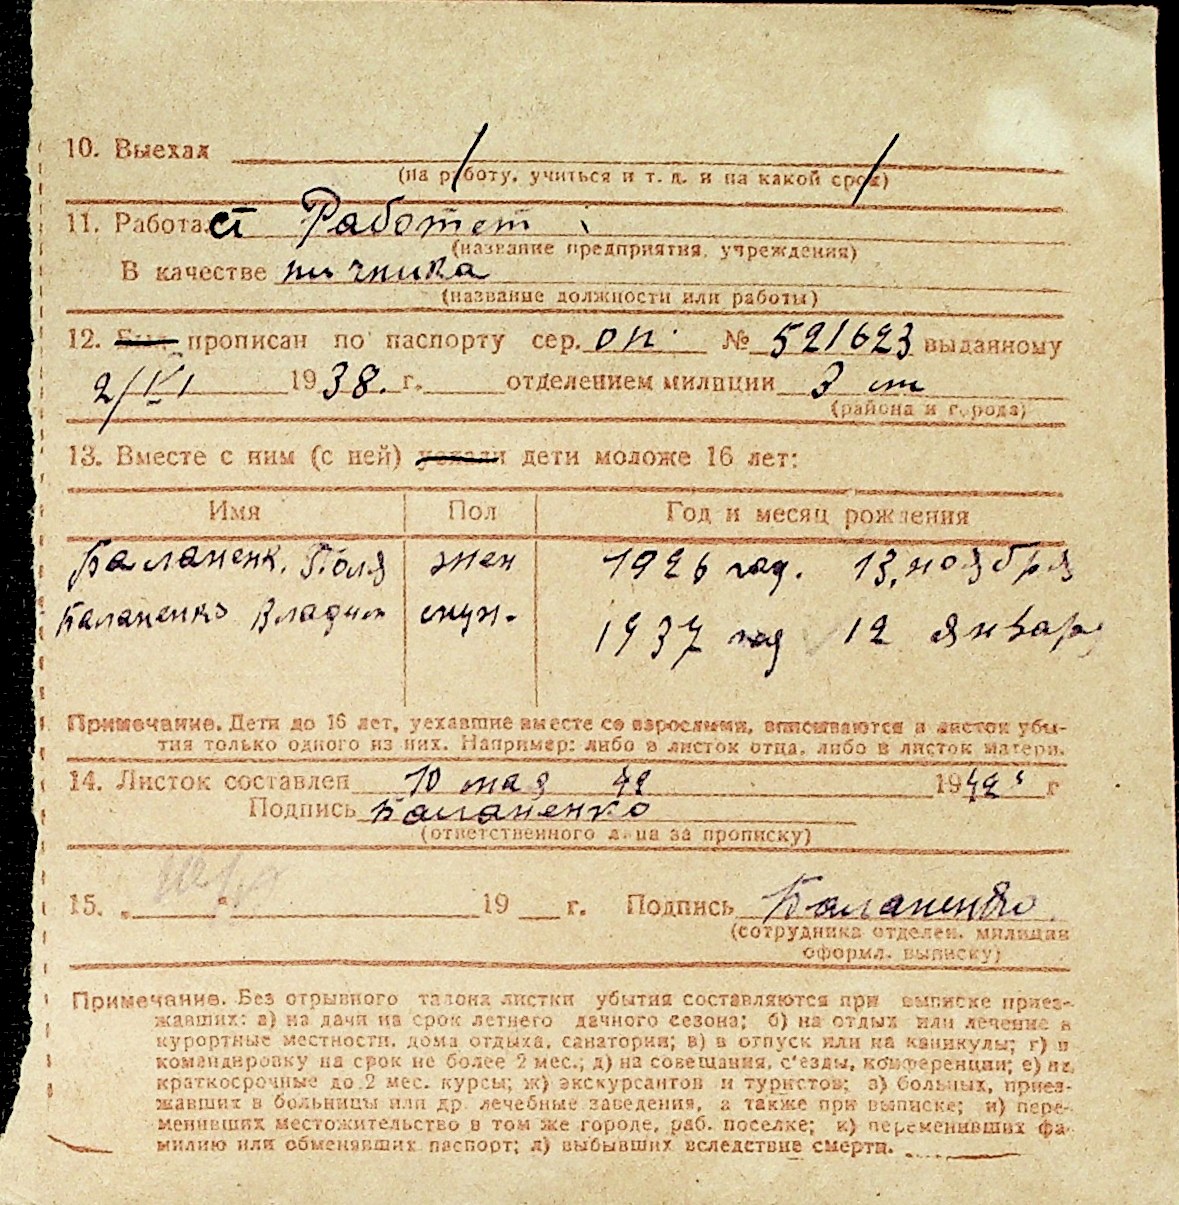 10. Выехал / /
(на работу, учиться и т. д. и на какой срок)
11. Работает Работет
(название предприятия, учреждения)
В качестве пичника
(название должности или работы)
12. Был прописан по паспорту сер. ОП № 521623 выданному
2/VI 1938. г. отделением милиции 3 от
(района и города)
13. Вместе с ним (с ней) уехали дети моложе 16 лет:
Имя Пол Год и месяц рождения
Баланенк. Поля жен 1926 год. 13, ноября
Баланенко Владим муж. 1937 год 12 январ
Примечание. Дети до 16 лет, уехавшие вместе со взрослыми, вписываются в листок убы-
тия только одного из них. Например: либо в листок отца, либо в листок матери.
14. Листок составлен 10 мая 42 1942 г
Подпись Баланенко
(ответственного лица за прописку)
15. 19 г. Подпись Баланенко
(сотрудника отделен. милиции
оформл. выписку)
Примечание. Без отрывного талона листки убытия составляются при выписке приез-
жавших: а) на дачи на срок летнего дачного сезона; б) на отдых или лечение в
курортные местности, дома отдыха, санатории; в) в отпуск или на каникулы; г) в
командировку на срок не более 2 мес.; д) на совещания, с'езды, конференции; е) на
краткосрочные до 2 мес. курсы; ж) экскурсантов и туристов; з) больных, приез-
жавших в больницы или др. лечебные заведения, а также при выписке; и) пере-
менивших местожительство в том же городе, раб. поселке; к) переменивших фа-
милию или обменявших паспорт; л) выбывших вследствие смерти.